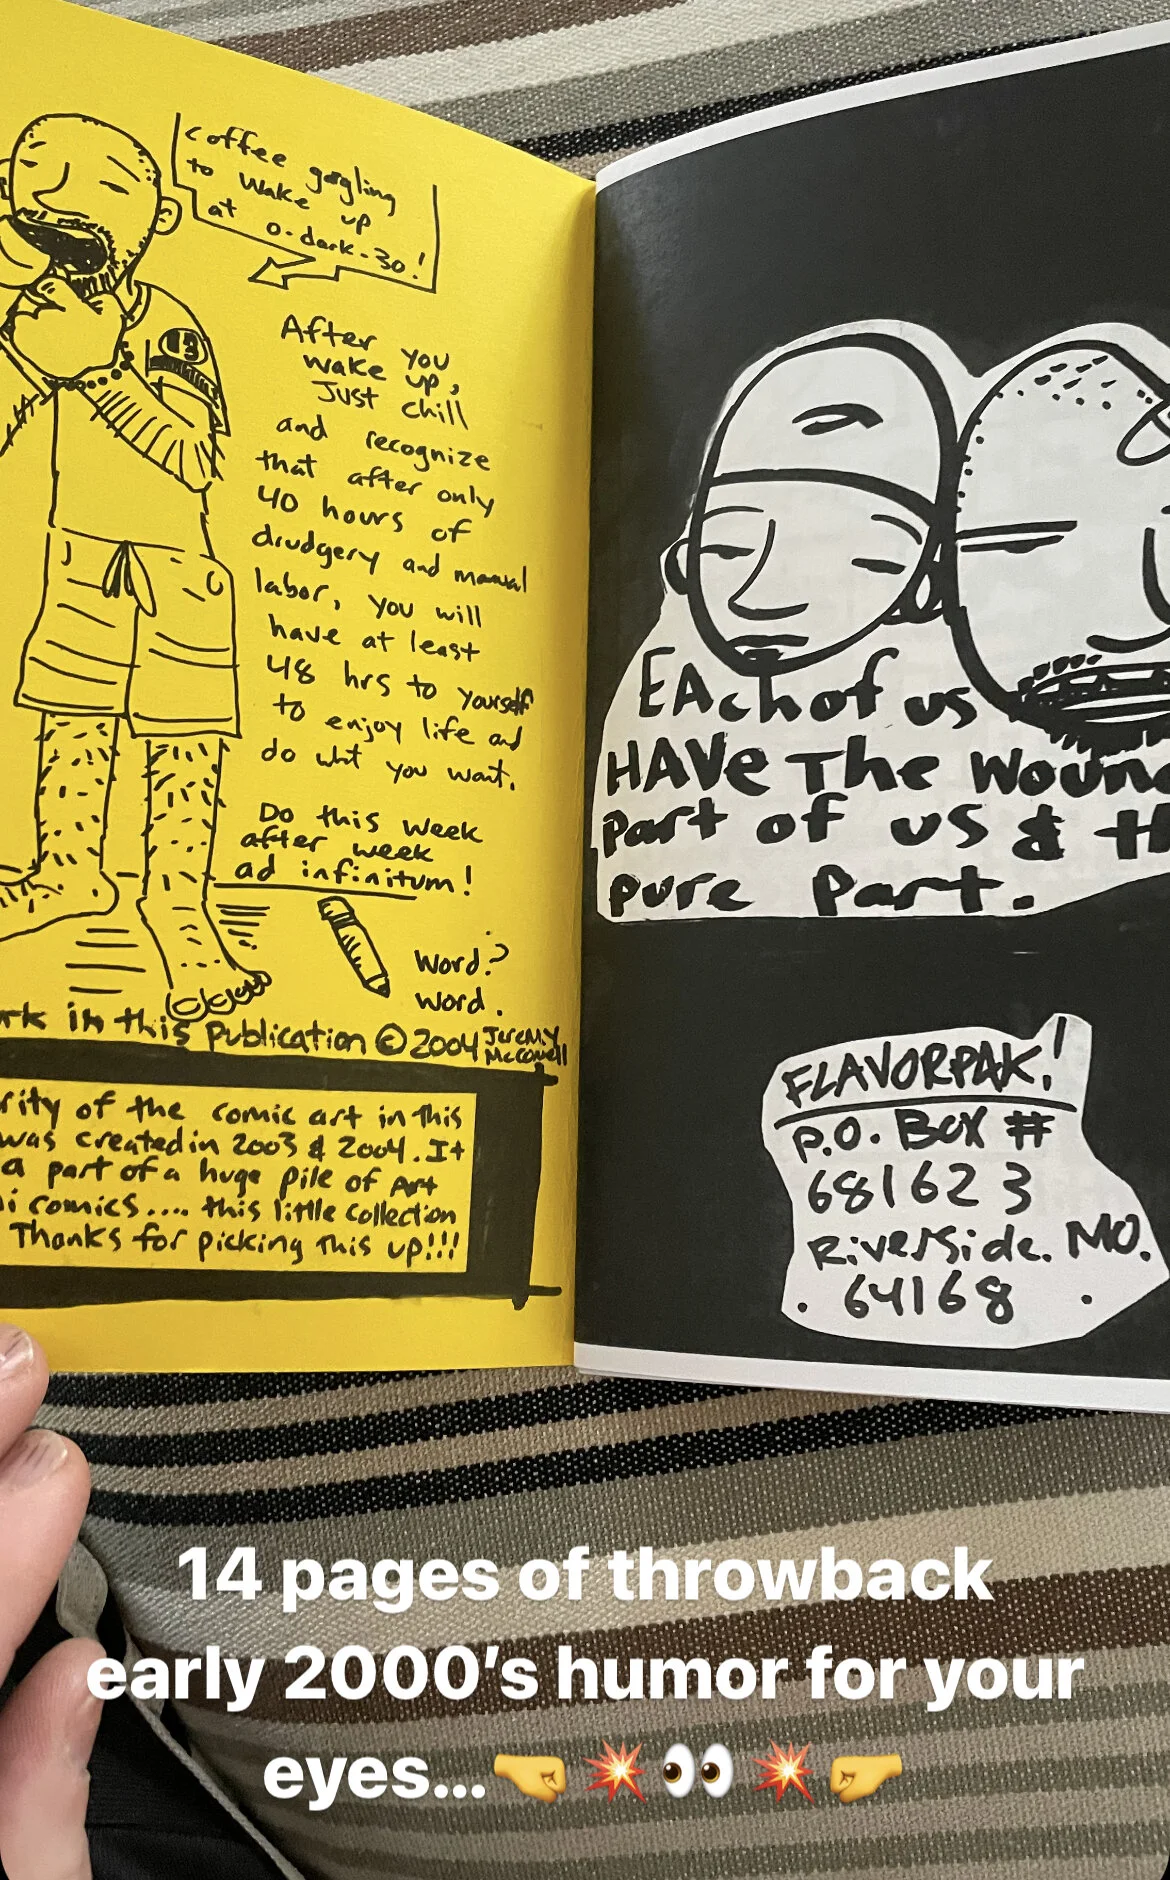 coffee gargling
to wake up
at 0-dark-30!
13
After you
wake up,
Just chill
and recognize
that after only
40 hours of
drudgery and manual
labor, you will
have at least
48 hrs to yourself
to enjoy life and
do wht you want.
Do this week
after week
ad infinitum!
Word?
word.
rk in this publication © 2004 Jeremy
McConnell
rity of the comic art in this
was created in 2003 & 2004. It
a part of a huge pile of Art
i comics.... this little collection
Thanks for picking this up!!!
EAch of us
HAVe The Woun
part of us & th
pure part.
FLAVORPAK!
P.O. Box #
681623
Riverside. MO.
64168
14 pages of throwback
early 2000's humor for your
eyes...🤜💥👀💥🤛